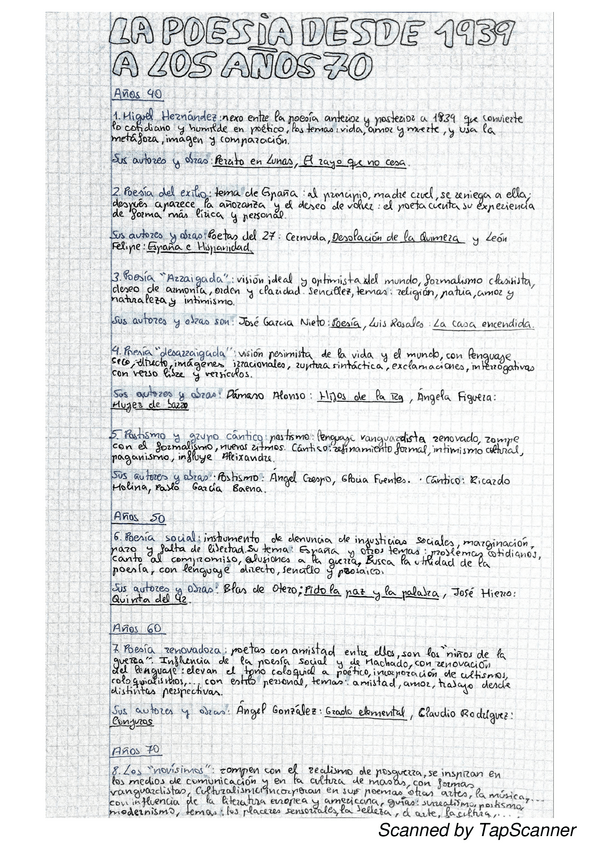 LA POESÍA DESDE 1939
A LOS AÑOS 70
Años 40
1. Miguel Hernández: nexo entre la poesía anterior y posterior a 1939 que convierte
lo cotidiano y humilde en poético, los temas: vida, amor y muerte, y usa la
metáfora, imagen y comparación.
Sus autores y obras: Perito en lunas, El rayo que no cesa.
2. Poesía del exilio: tema de España: al principio, madre cruel, se reniega a ella,
después aparece la añoranza y el deseo de volver: el poeta cuenta su experiencia
de forma más lírica y personal.
Sus autores y obras: Poetas del 27: Cernuda, Desolación de la Quimera y León
Felipe: España e Hispanidad.
3. Poesía "Arraigada": visión ideal y optimista del mundo, formalismo clasista,
deseo de armonía, orden y claridad. Sencillez, temas: religión, patria, amor y
naturaleza y intimismo.
Sus autores y obras son: José García Nieto: Poesía, Luis Rosales: La casa encendida.
4. Poesía "desarraigada": visión pesimista de la vida y el mundo, con lenguaje
seco, directo, imágenes irracionales, ruptura sintáctica, exclamaciones, interrogativas
con verso libre y versículos.
Sus autores y obras: Dámaso Alonso: Hijos de la ira, Ángela Figuera:
Mujer de barro
5. Postismo y grupo cántico: postismo: lenguaje vanguardista renovado, rompe
con el formalismo, nuevos ritmos. Cántico: refinamiento formal, intimismo cultural,
paganismo, influye Aleixandre.
Sus autores y obras: · Postismo: Ángel Crespo, Gloria Fuentes. · Cántico: Ricardo
Molina, Pablo García Baena.
Años 50
6. Poesía social: instrumento de denuncia de injusticias sociales, marginación,
paro y falta de libertad. Su tema: España y otros temas: problemas cotidianos,
canto al compromiso, alusiones a la guerra, busca la utilidad de la
poesía, con lenguaje directo, sencillo y prosaico.
Sus autores y obras: Blas de Otero: Pido la paz y la palabra, José Hierro:
Quinta del 42.
Años 60
7. Poesía renovadora: poetas con amistad entre ellos, son los "niños de la
guerra". Influencia de la poesía social y de Machado, con renovación
del lenguaje: elevan el tono coloquial a poético, incorporación de cultismos,
coloquialismos,... con estilo personal, temas: amistad, amor, trabajo desde
distintas perspectivas.
Sus autores y obras: Ángel González: Grado elemental, Claudio Rodríguez:
Conjuros
Años 70
8. Los "novísimos": rompen con el realismo de posguerra, se inspiran en
los medios de comunicación y en la cultura de masas, con formas
vanguardistas, Culturalismo: incorporan en sus poemas otras artes, la música,...
con influencia de la literatura europea y americana, guías: surrealismo, postismo
modernismo, temas: los placeres sensoriales, la belleza, el arte, la cultura,...
Scanned by TapScanner